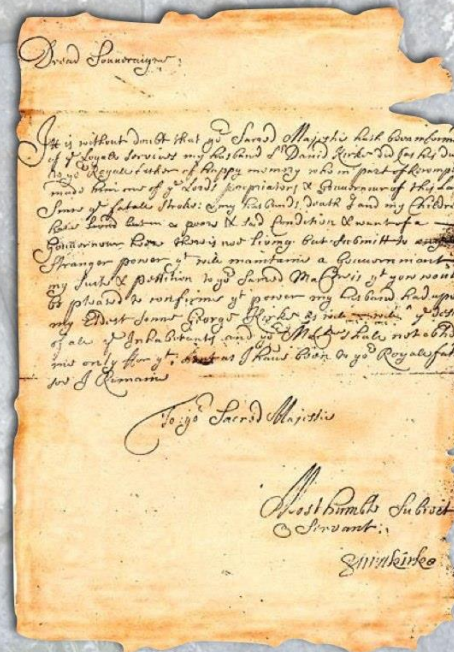 Dread Souveraigne:
Itt is without doubt that yor Sacred Majestie hath been inform
of ye Loyale services my husband Sr David Kirke did &
to yor Royale father of happy memory who in part of recomp
made him one of ye Lords propriators & Gouvernour of this La
Since ye fatale stroke: my husbands death I and my Children
have lived but in a poore & sad Condition & want of a
Gouvernour here there is noe living but submitt to
Stranger power yt will maintaine a Gouvernment
my suite & petition to yor Sacred Matie is yt you would
be pleased to confirme ye power my husband had upon
my Eldest sonne George Kirke as ye des
of all ye Inhabitants and yor Matie shall not
me only for yt, but as I have been to yor Royale fat
soe I Remaine
To yor Sacred Majestie
Most humble Subiect
& Servant:
Kirke